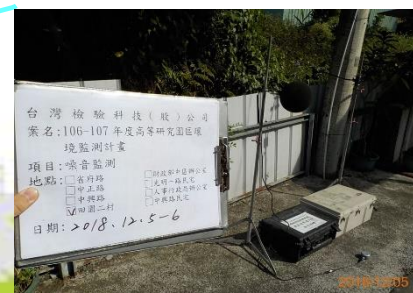 台灣檢驗科技(股)公司
案名:106-107年度高等研究園區環
境監測計畫
項目:噪音監測
地點:□省府路
□中正路
□中興路
☑田園二村
□財政部中區辦公室
□光明一路民宅
□人事行政局辦公室
□中興路民宅
日期:2018.12.5-6
2018/12/05